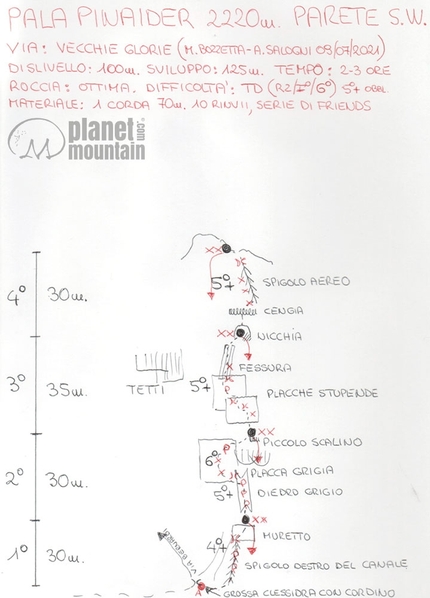 PALA PINAIDER 2220m. PARETE S.W.
VIA: VECCHIE GLORIE (M. BOZZETTA-A. SALOGNI 09/07/2021)
DISLIVELLO: 100m. SVILUPPO: 125m. TEMPO: 2-3 ORE
ROCCIA: OTTIMA. DIFFICOLTA': TD (R2/I°/6°) 5°+ OBBL.
MATERIALE: 1 CORDA 70m. 10 RINVII, SERIE DI FRIENDS
planet
mountain
.com
4° 30m.
5°+
SPIGOLO AEREO
CENGIA
NICCHIA
FESSURA
TETTI
3° 35m.
5°+
PLACCHE STUPENDE
PICCOLO SCALINO
6°
PLACCA GRIGIA
2° 30m.
5°+
DIEDRO GRIGIO
MURETTO
4°
1° 30m.
SPIGOLO DESTRO DEL CANALE
GROSSA CLESSIDRA CON CORDINO